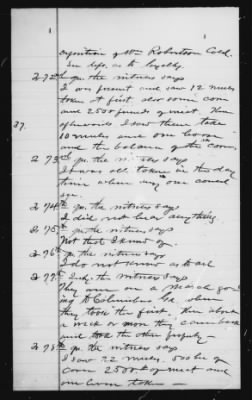 exposition of Wm Robertson Cold.
See dep. as to loyalty.
To 72nd qu. the witness says
I was present and saw 12 mules
taken at first also some corn
and 2500 pounds of meat. Then
afterwards I saw them take
10 mules and one horse
and the balance of the corn,
37.
To 73rd qu. the witness says
It was all taken in the day
time when any one could
see.
To 74th qu. the witness says
I did not hear anything.
To 75th qu. the witness says
Not that I know of.
To 76th qu. the witness says
I do not know as to all
To 77th Ind. the witness says
They were on a march going
to Columbus Ga when
they took the first, then about
a week or more they came back
and took the other property—
To 78th qu. the witness says
I saw 22 mules. 500 bu of
corn 2500 # of meat and
one horse taken —